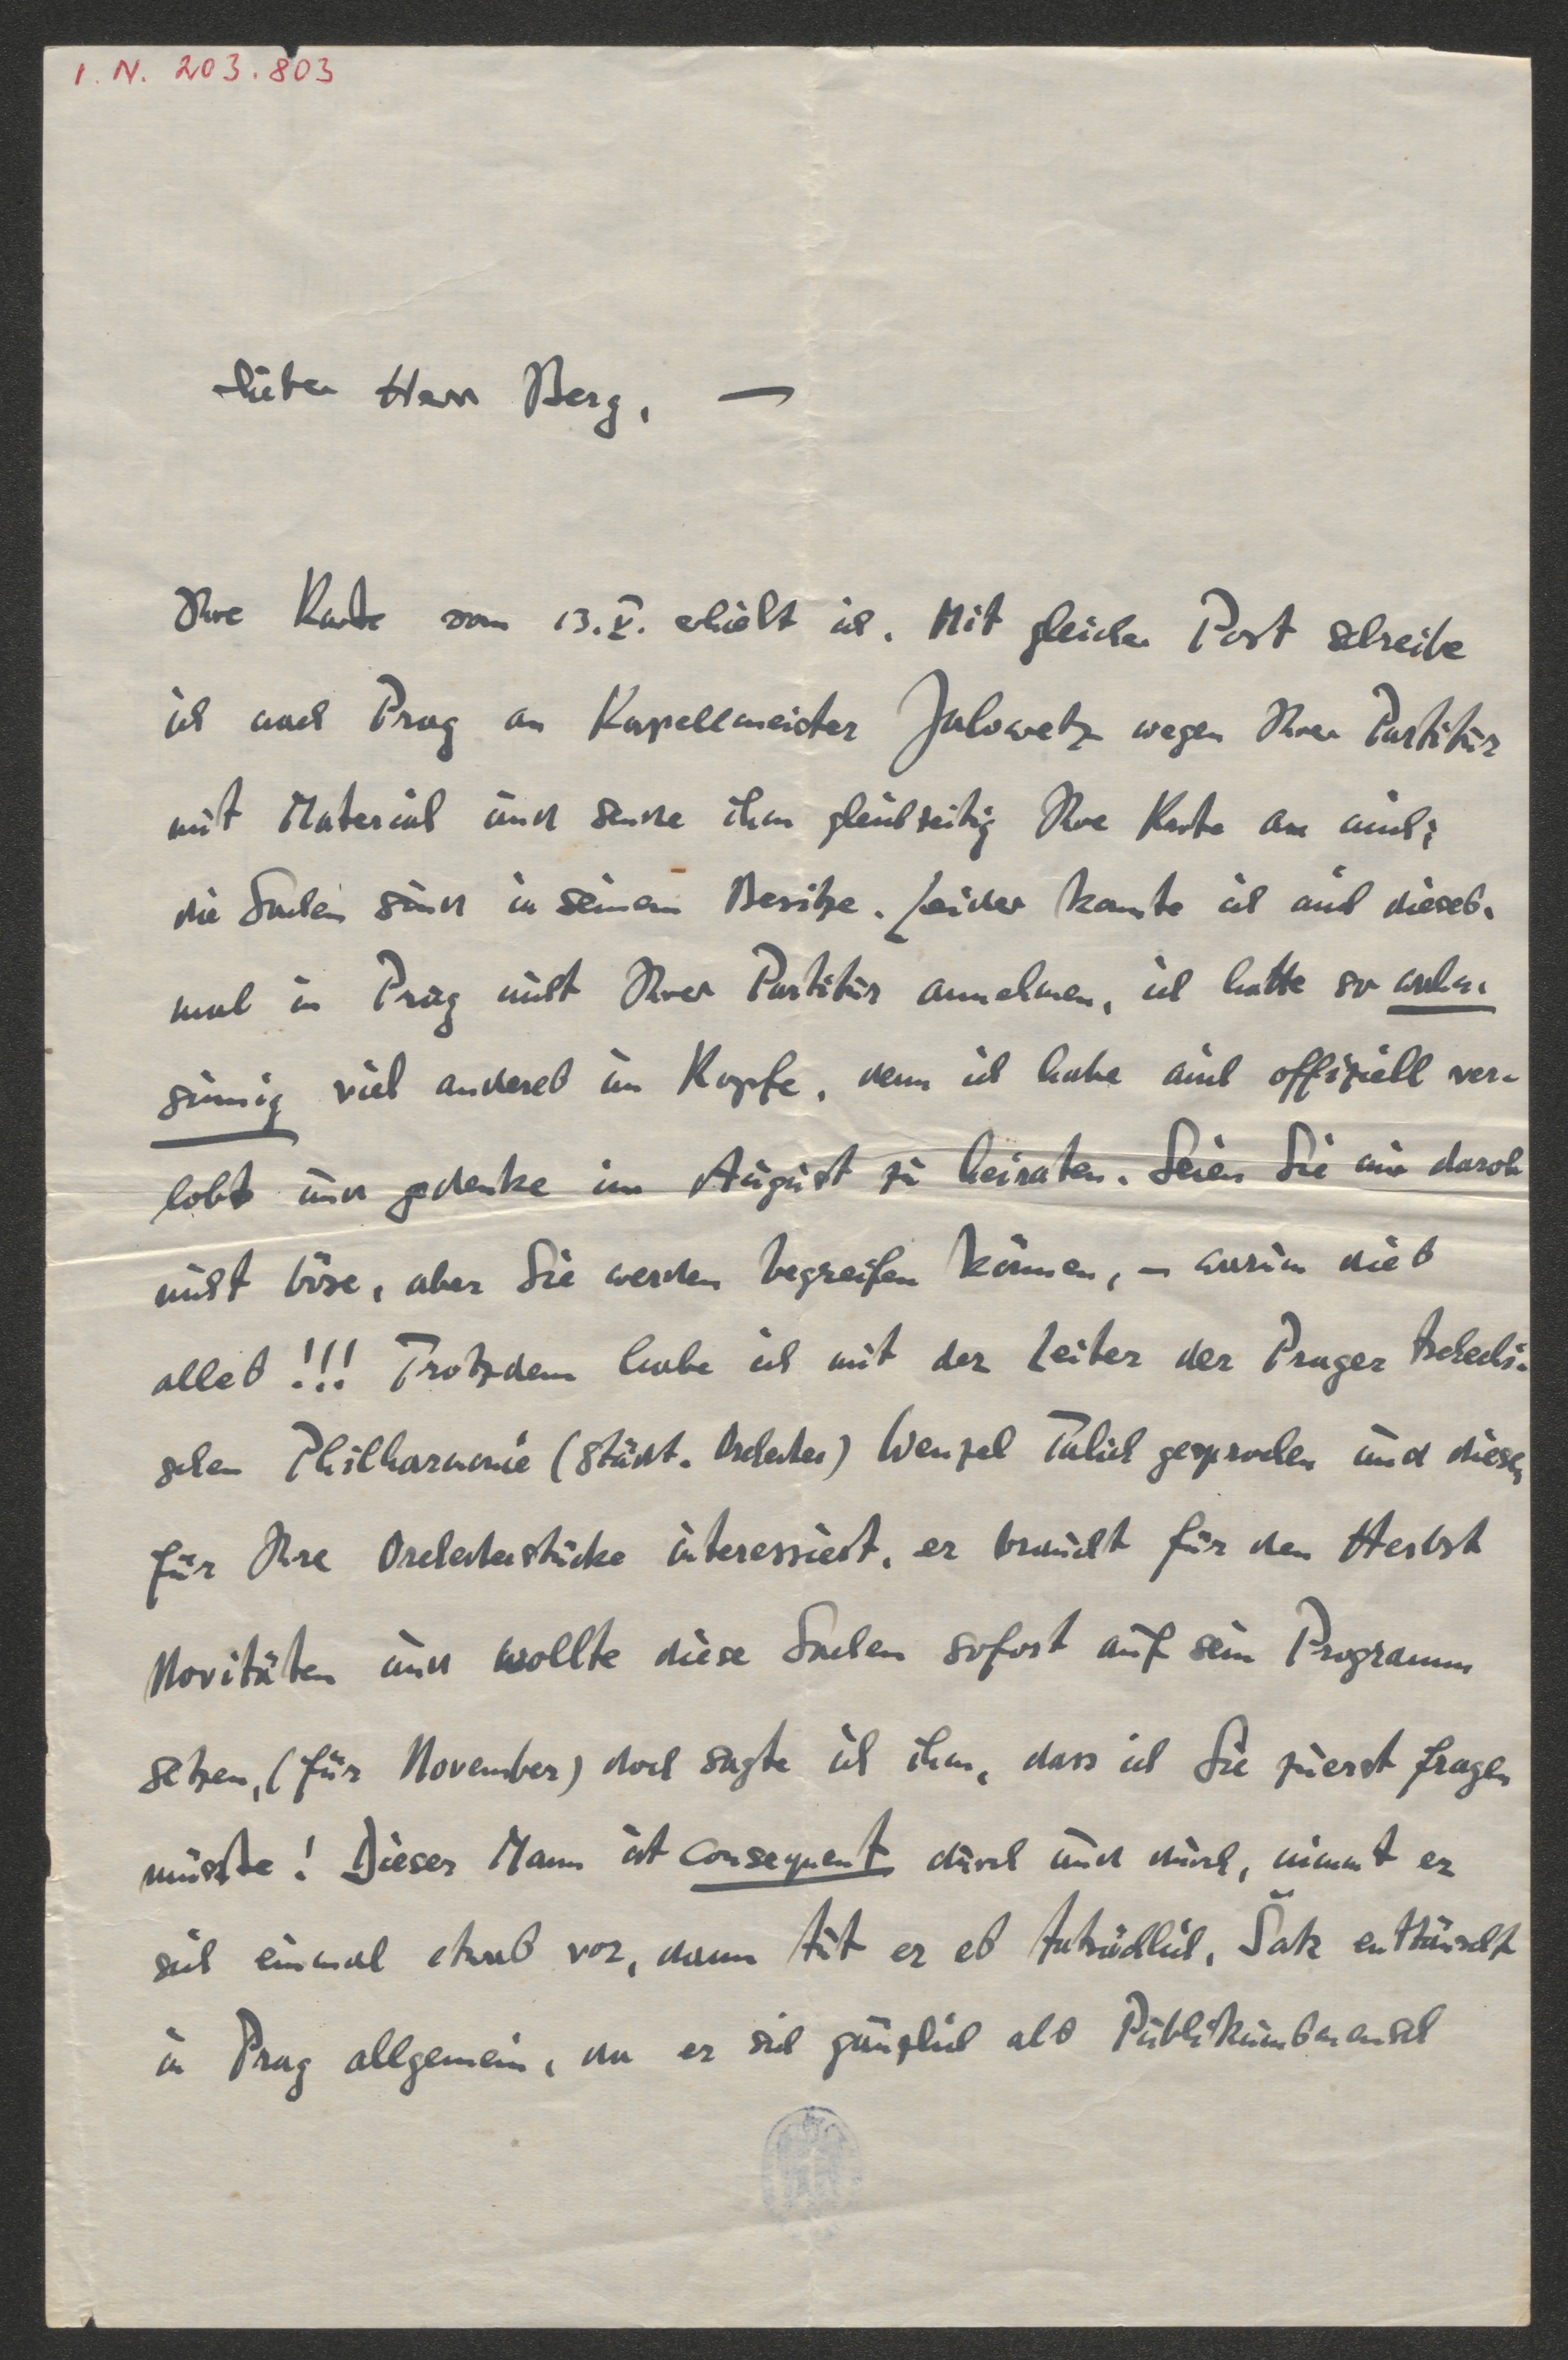 I. N. 203.803
Lieber Herr Berg, —
Ihre Karte vom 13.V. erhielt ich. Mit gleicher Post schreibe
ich nach Prag an Kapellmeister Jalowetz wegen Ihrer Partitur
mit Material und sende ihm gleichzeitig Ihre Karte an mich;
die Sachen sind in seinem Besitze. Leider konnte ich mich dieses-
mal in Prag nicht Ihrer Partitur annehmen, ich hatte so wahn-
sinnig viel anderes im Kopfe, denn ich habe mich offiziell ver-
lobt und gedenke im August zu heiraten. Seien Sie mir darob
nicht böse, aber Sie werden begreifen können, – warum dies
alles!!! Trotzdem habe ich mit der Leiter der Prager tschechi-
schen Philharmonie (städt. Orchester) Wenzel Talich gesprochen und diesen
für Ihre Orchesterstücke interessiert, er braucht für den Herbst
Novitäten und wollte diese Sachen sofort auf sein Programm
setzen, (für November) doch sagte ich ihm, dass ich Sie zuerst fragen
müsste! Dieser Mann ist consequent durch und durch, nimmt er
sich einmal etwas vor, dann tut er es tatsächlich. Šak enttäuscht
in Prag allgemein, da er sich gänzlich als Publikumsmensch